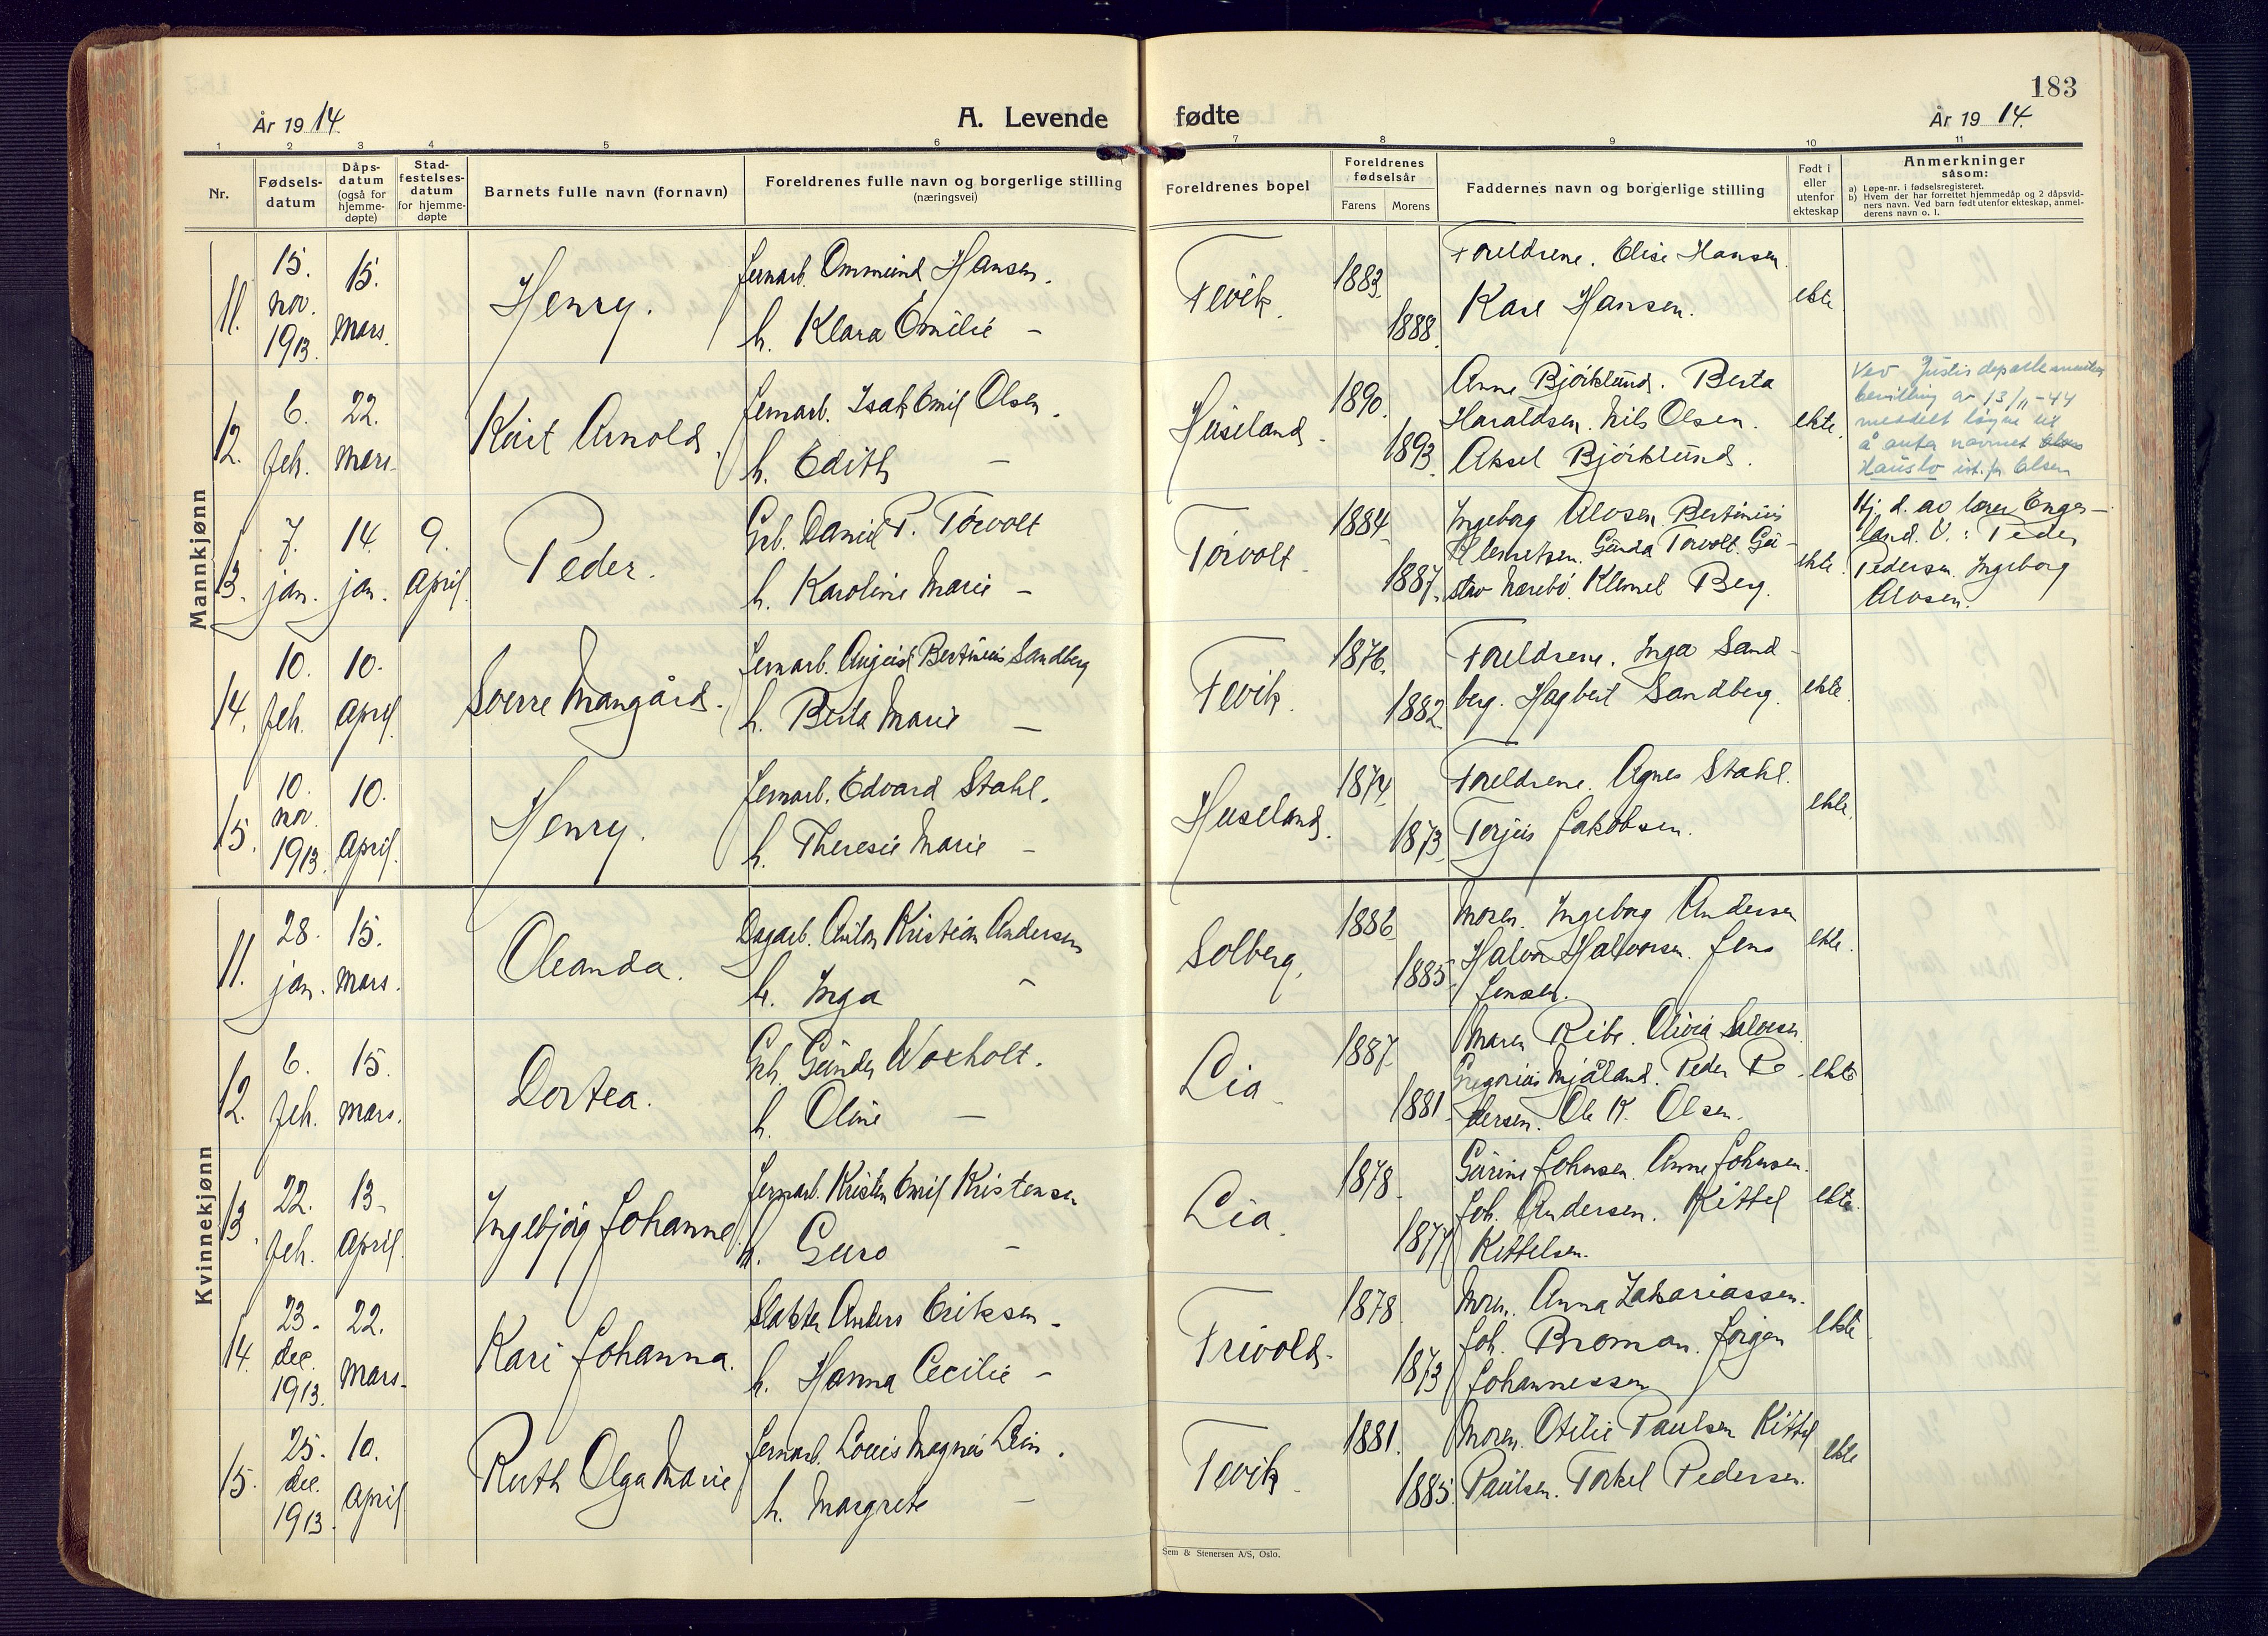 183
År 1914.
A. Levende fødte
År 1914.
1 2 3 4 5 6 7 8 9 10 11
Nr.
Fødsels-
datum
Dåps-
datum
(også for
hjemme-
døpte)
Stad-
festelses-
datum
for hjemme-
døpte
Barnets fulle navn (fornavn)
Foreldrenes fulle navn og borgerlige stilling
(næringsvei)
Foreldrenes bopel
Foreldrenes
fødselsår
Farens Morens
Faddernes navn og borgerlige stilling
Født i
eller
utenfor
ekteskap
Anmerkninger
såsom:
a) Løpe-nr. i fødselsregisteret.
b) Hvem der har forrettet hjemmedåp og 2 dåpsvid-
ners navn. Ved barn født utenfor ekteskap, anmel-
derens navn o. l.
Mannkjønn
11.
15.
nov.
1913.
15.
mars.
Henry.
Jernarb. Ommund Hansen.
h. Klara Emilie –
Fevik.
1883.
1888.
Foreldrene. Elise Hansen.
Karl Hansen.
ekte
12.
6.
feb.
22.
mars
Kurt Arnold.
Jernarb. Isak Emil Olsen.
h. Edith –
Huseland.
1890.
1893.
Anne Bjørklund. Berta
Haraldsen. Nils Olsen.
Aksel Bjørklund.
ekte.
Ved Justisdepartementets
bevilling av 13/11-44
meddelt løyve til
å anta navnet
Hauslo ist. for Olsen
13.
7.
jan.
14.
jan.
9.
April.
Peder.
Grb. Daniel P. Tørvolt
h. Karoline Marie –
Tørvolt.
1884
1887.
Ingeborg Alvsen. Bertinius
Klemetsen. Gunda Tørvolt. Gu-
stav Nærebø. Klemet Berg.
ekte.
Hj. d. av lærer Enge-
land. V.: Peder
Pedersen. Ingeborg
Alvsen.
14.
10.
feb.
10.
April.
Sverre Mangård.
Jernarb. August Bertinius Sandberg
h. Berta Marie –
Fevik.
1876.
1882
Foreldrene. Inga Sand-
berg. Hagbert Sandberg.
ekte.
15.
10.
nov.
1913.
10.
April.
Henry.
Jernarb. Edvard Stahl.
h. Theresie Marie –
Huseland.
1874.
1873
Foreldrene. Agnes Stahl.
Torjus Jakobsen.
ekte.
Kvinnekjønn
11.
28.
jan.
15.
mars.
Oleanda.
Dagarb. Anton Kristian Andersen
h. Inga –
Solberg.
1886
1885
Moren. Ingeborg Andersen
Halvor Halvorsen. Jens
Jensen.
ekte.
12.
6.
feb.
15.
mars.
Dortea.
Grb. Gunder Woxholt.
h. Oline –
Lia.
1887.
1881.
Maren Ribe. Olivia Salvesen
Gregorius Mjåland. Peder Pe-
dersen. Ole K. Olsen.
ekte
13.
22.
feb.
13.
April.
Ingebjøg Johanne.
Jernarb. Kristen Emil Kristensen
h. Guro –
Lia.
1878.
1877
Gurine Johnsen. Anne Johnsen.
Joh. Andersen. Kittel
Kittelsen.
ekte.
14.
23.
dec.
1913.
22.
Mars.
Kari Johanna.
Slakter Anders Eriksen.
h. Hanna Cecilie –
Frivold.
1878.
1873
Moren. Anna Zakariassen.
Joh. Broman. Jørgen
Johannessen
ekte
15.
25.
dec.
1913.
10.
April
Ruth Olga Marie
Jernarb. Louis Magnus Lein.
h. Margrete –
Fevik.
1881.
1885.
Moren. Otilie Paulsen Kittel
Paulsen. Torkel Pedersen.
ekte
Sem & Stenersen A/S, Oslo.